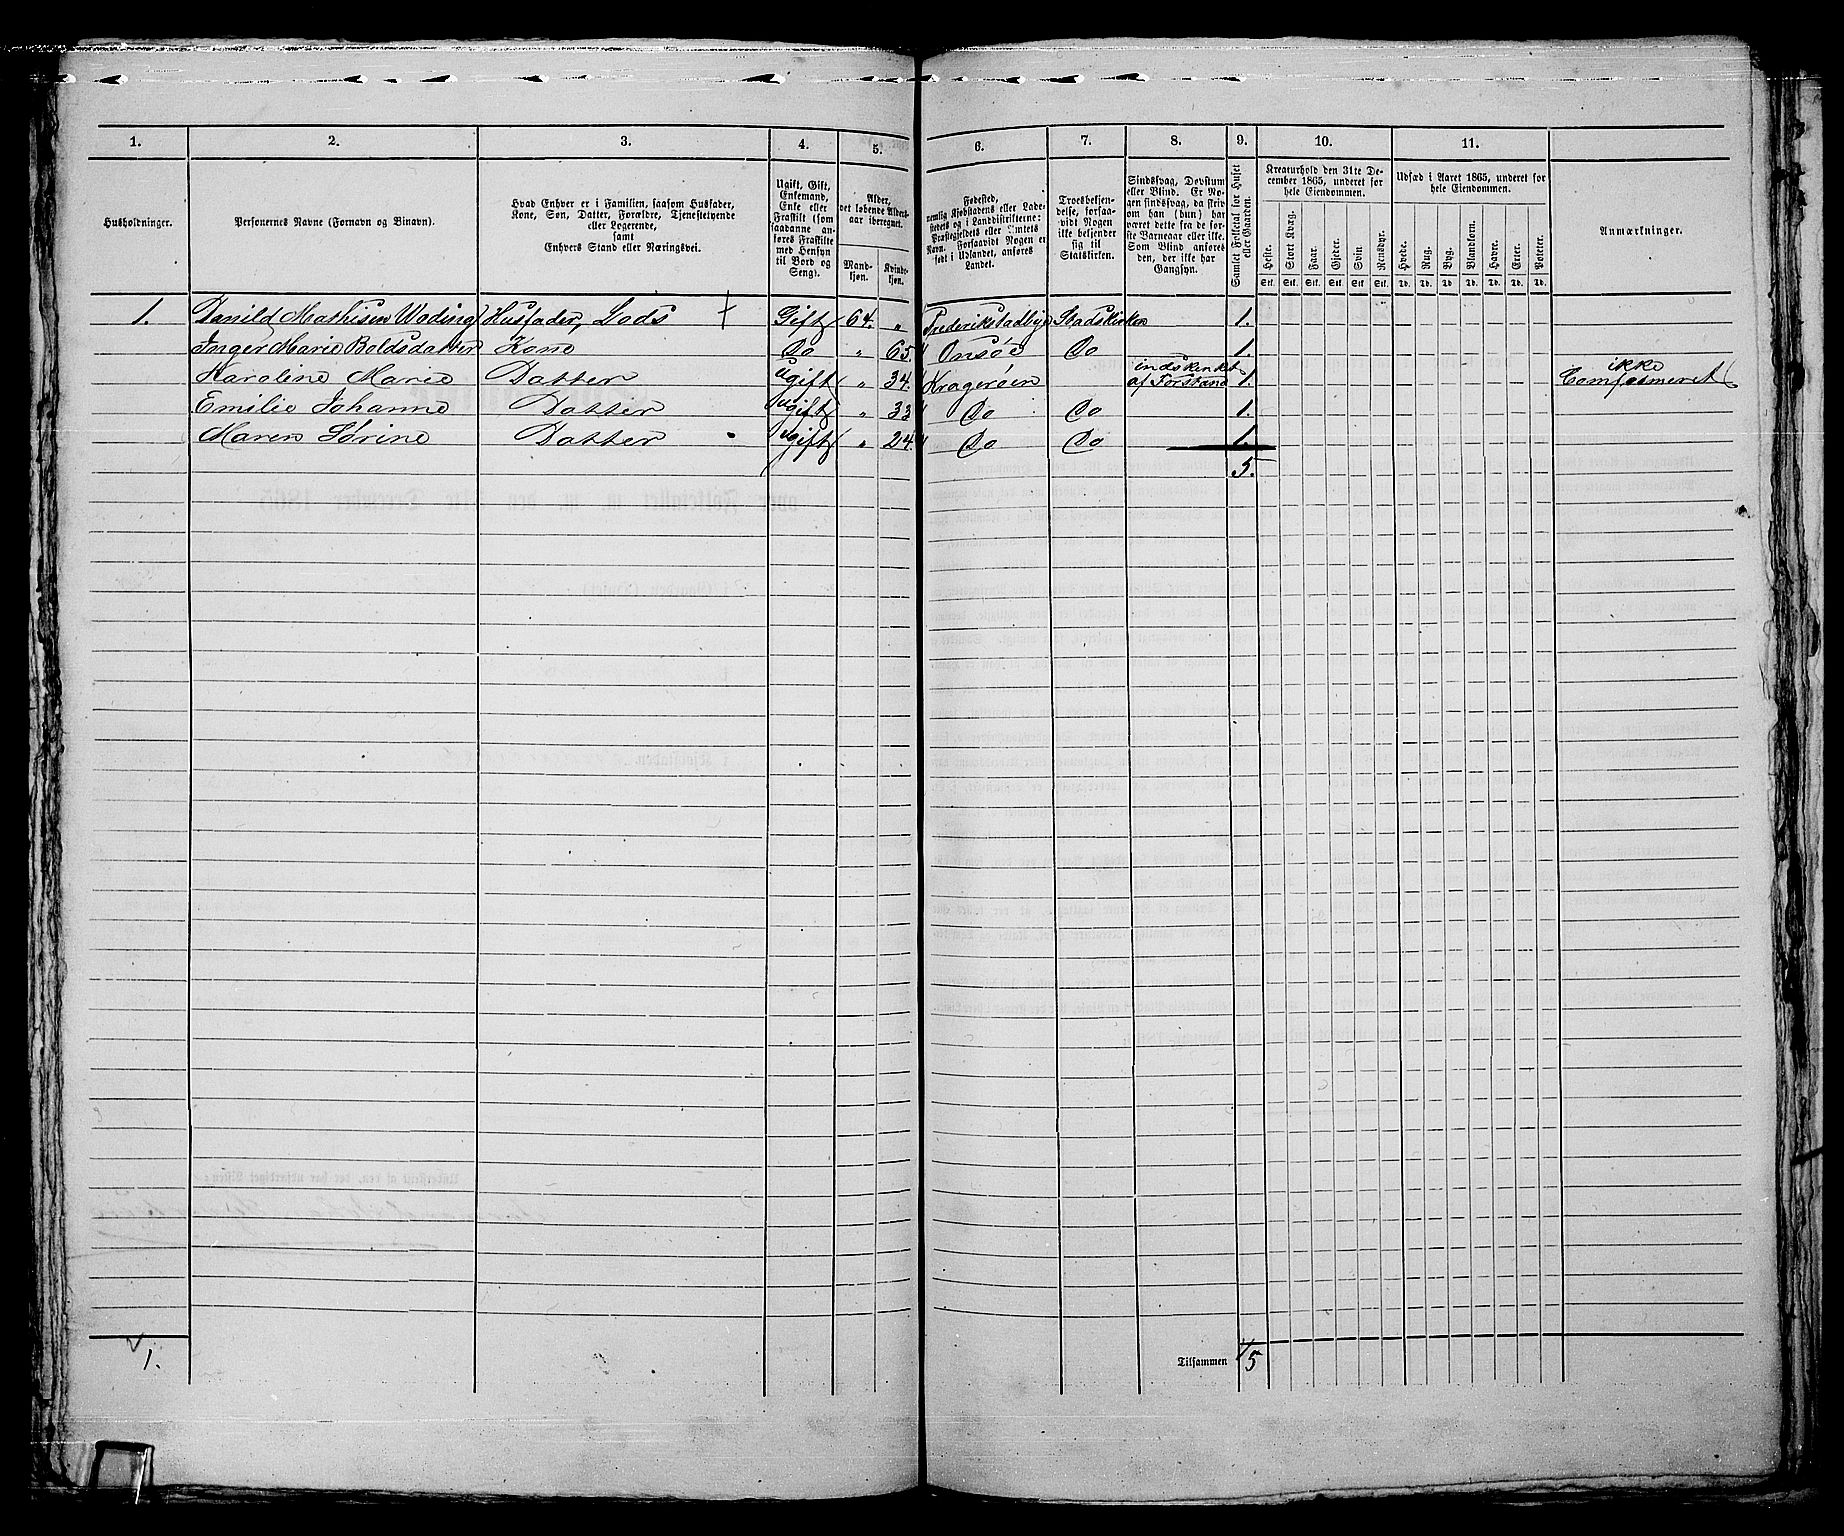 1. 2. 3. 4. 5. 6. 7. 8. 9. 10. 11.
Husholdninger.
Personernes Navne (Fornavn og Binavn).
Hvad Enhver er i Familien, saasom Husfader,
Kone, Søn, Datter, Forældre, Tjenestetyende
eller Logerende,
samt
Enhvers Stand eller Næringsvei.
Ugift, Gift,
Enkemand,
Enke eller
Fraskilt (som
saadanne an-
føres Fraskilte
med Hensyn
til Bord og
Seng).
Alder,
det løbende Alders-
aar iberegnet.
Mand-
kjøn.
Kvinde-
kjøn.
Fødested,
nemlig Kjøbstadens eller Lade-
stedets og i Landdistrikterne:
Præstegjeldets eller Amtets
Navn. Forsaavidt Nogen er
født i Udlandet, anføres
Landet.
Troesbekjen-
delse, forsaa-
vidt Nogen
ikke bekjender
sig til
Statskirken.
Sindssvag, Døvstum
eller Blind. Er No-
gen sindssvag, da skriv
om han (hun) har
været dette fra de før-
ste Barneaar eller ikke.
Som Blind anføres
den, der ikke har
Gangsyn.
Samlet Folketal for Huset
eller Gaarden.
Kreaturhold den 31te De-
cember 1865, underet for
hele Eiendommen.
Heste. Stort Kvæg. Faar. Gjeder. Svin Rensdyr.
Stk. Stk. Stk. Stk. Stk. Stk.
Udsæd i Aaret 1865, underet for
hele Eiendommen.
Hvede. Rug. Byg. Blandkorn. Havre. Erter. Poteter.
Td. Td. Td Td. Td. Td. Td.
Anmærkninger.
1. Danild Mathisen Woding Husfader, Lods + Gift 64. „ Frederikstadbye Stadskirken 1.
Inger Marie Boldsdatter Kone Do „ 65. Onsøe Do 1.
Karoline Marie Datter Ugift „ 34. Kragerøen indskrenket af Forstand 1. ikke Comfermeret
Emilie Johanne Datter Ugift „ 33 Do Do 1.
Maren Sørine Datter Ugift „ 24. Do Do 1.
5.
1.
Tilsammen 5